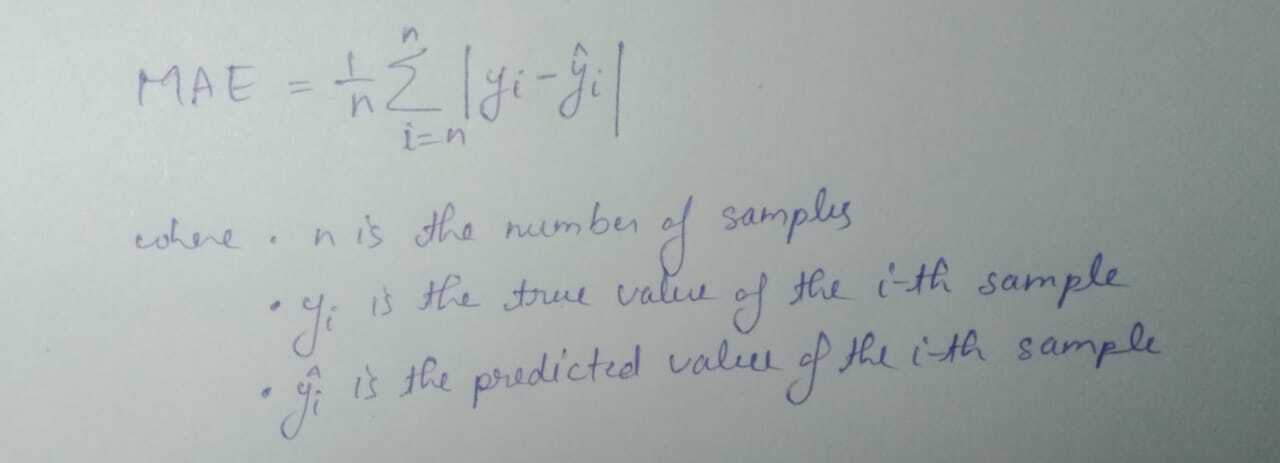 MAE = \frac{1}{n} \sum_{i=n}^{n} |y_i - ŷ_i|
where • n is the number of samples
• y_i is the true value of the i-th sample
• ŷ_i is the predicted value of the i-th sample